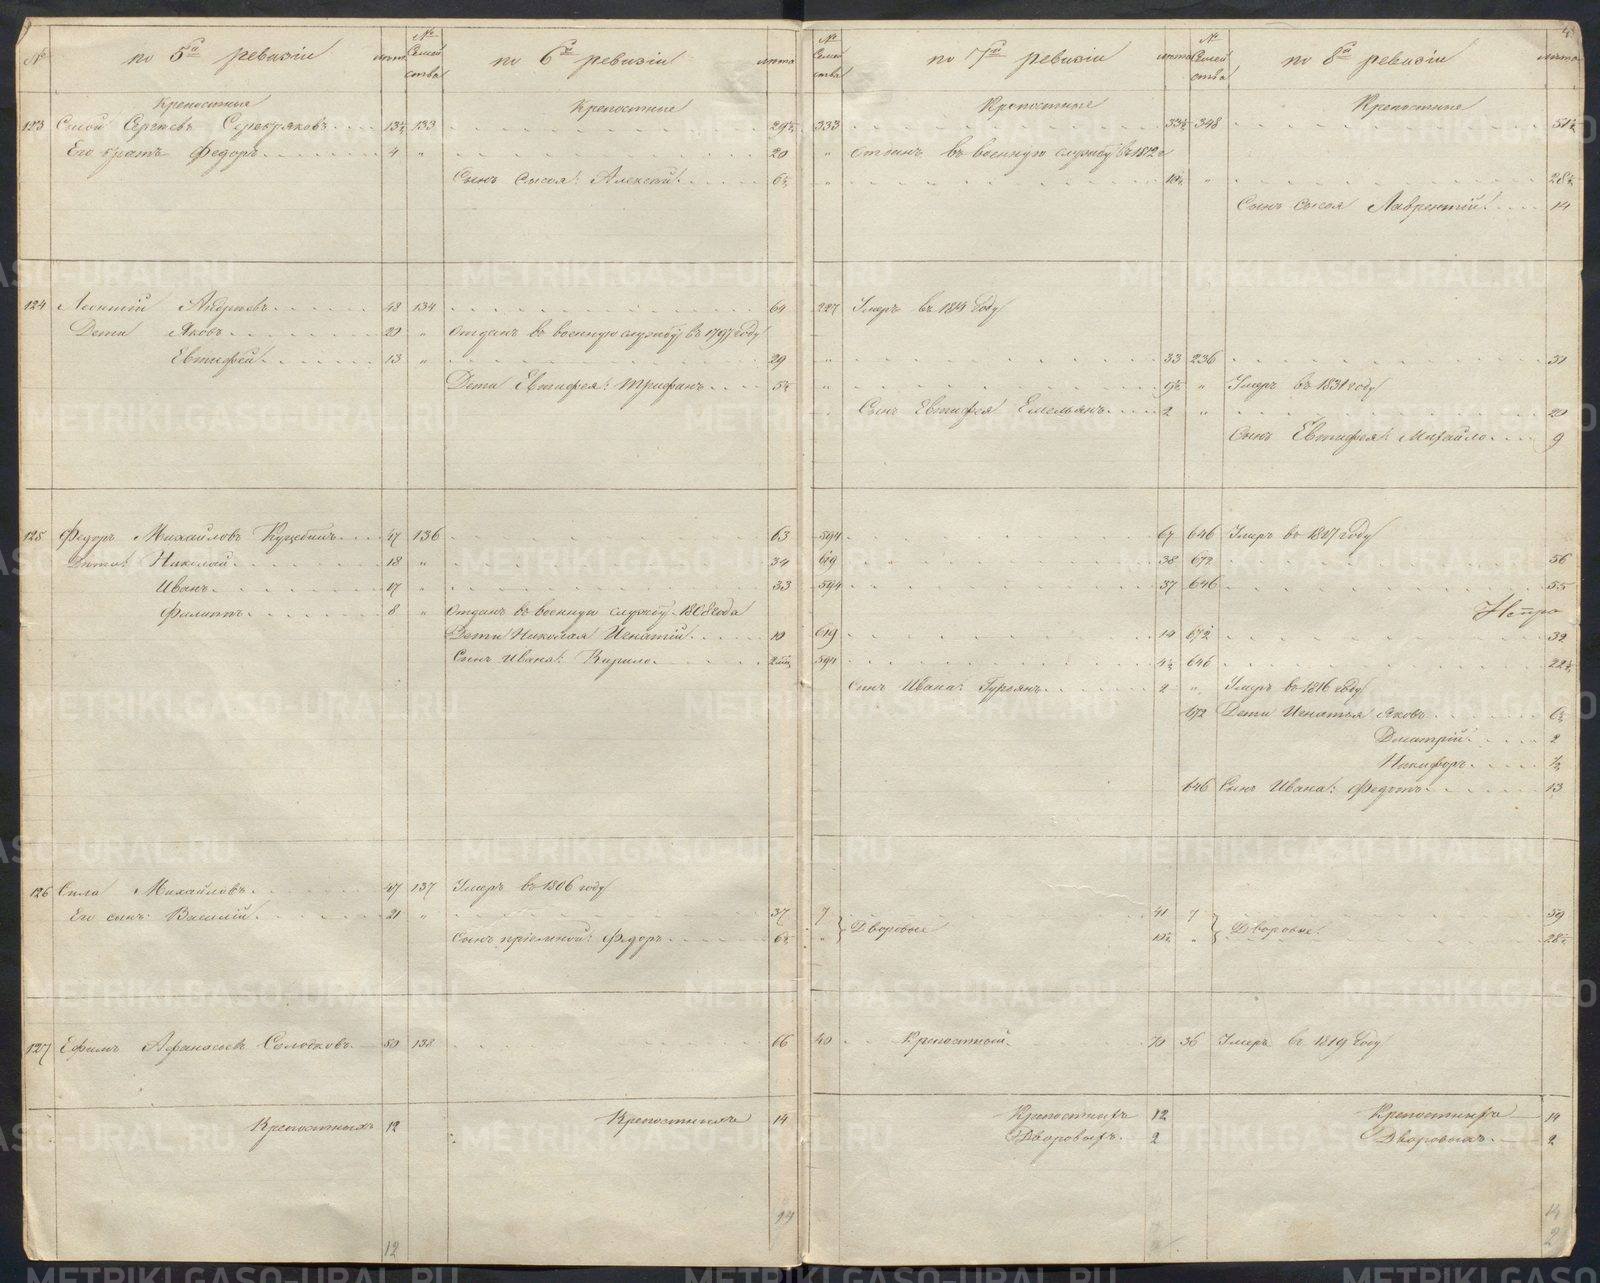 № по 5й ревизіи лѣта № Семей ства по 6й ревизіи лѣта № Семей ства по 7й ревизіи лѣта № Семей ства по 8й ревизіи лѣта
Крепостные Крепостные Крепостные Крепостные
123 Сысой Сергѣевъ Серебряковъ 13½ 133 29½ 333 33½ 348 51½
Его братъ Федоръ 4 " 20 " отданъ въ военную службу въ 1812 г
Сынъ Сысоя: Алексѣй 6½ " 10½ " 28½
Сынъ Сысоя Лаврентій 14
124 Леонтій Андреевъ 48 134 64 227 Умеръ въ 1814 году
Дети Яковъ 20 " отданъ въ военную службу въ 1797 году
Евтифей 13 " 29 " 33 236 51
Дети Евтифея: Трифанъ 5½ " 9½ " Умеръ въ 1831 году
Сынъ Евтифея Емельянъ 2 " 20
Сынъ Евтифея: Михайло 9
125 Федоръ Михайловъ 47 136 63 594 67 646 Умеръ въ 1817 году
Дети: Николай 18 " 34 619 38 672 56
Иванъ 17 " 33 594 37 646 55
Филиппъ 8 " Отданъ въ военную службу 1808 года
Дети Николая Игнатій 10 619 14 672 32
Сынъ Ивана: Кирило 594 4½ 646 22½
Сынъ Ивана: Гурьянъ 2 " Умеръ въ 1816 году
672 Дети Игнатья Яковъ 6½
Дмитрій 2
Никифоръ ½
646 Сынъ Ивана: Федотъ 13
126 Сила Михайловъ 47 137 Умеръ въ 1806 году
Его сынъ: Василій 21 " 37 7 Дворовые 41 7 Дворовые 59
Сынъ пріемной: Федоръ 6½ " 10½ " 28½
127 Ефимъ Афанасьевъ Солодковъ 50 138 66 40 Крепостной 70 36 Умеръ въ 1819 году
Крепостныхъ 12 Крепостныхъ 14 Крепостныхъ 12 Крепостныхъ 14
Дворовыхъ 2 Дворовыхъ 2
12 14 14
2
METRIKI.GASO-URAL.RU